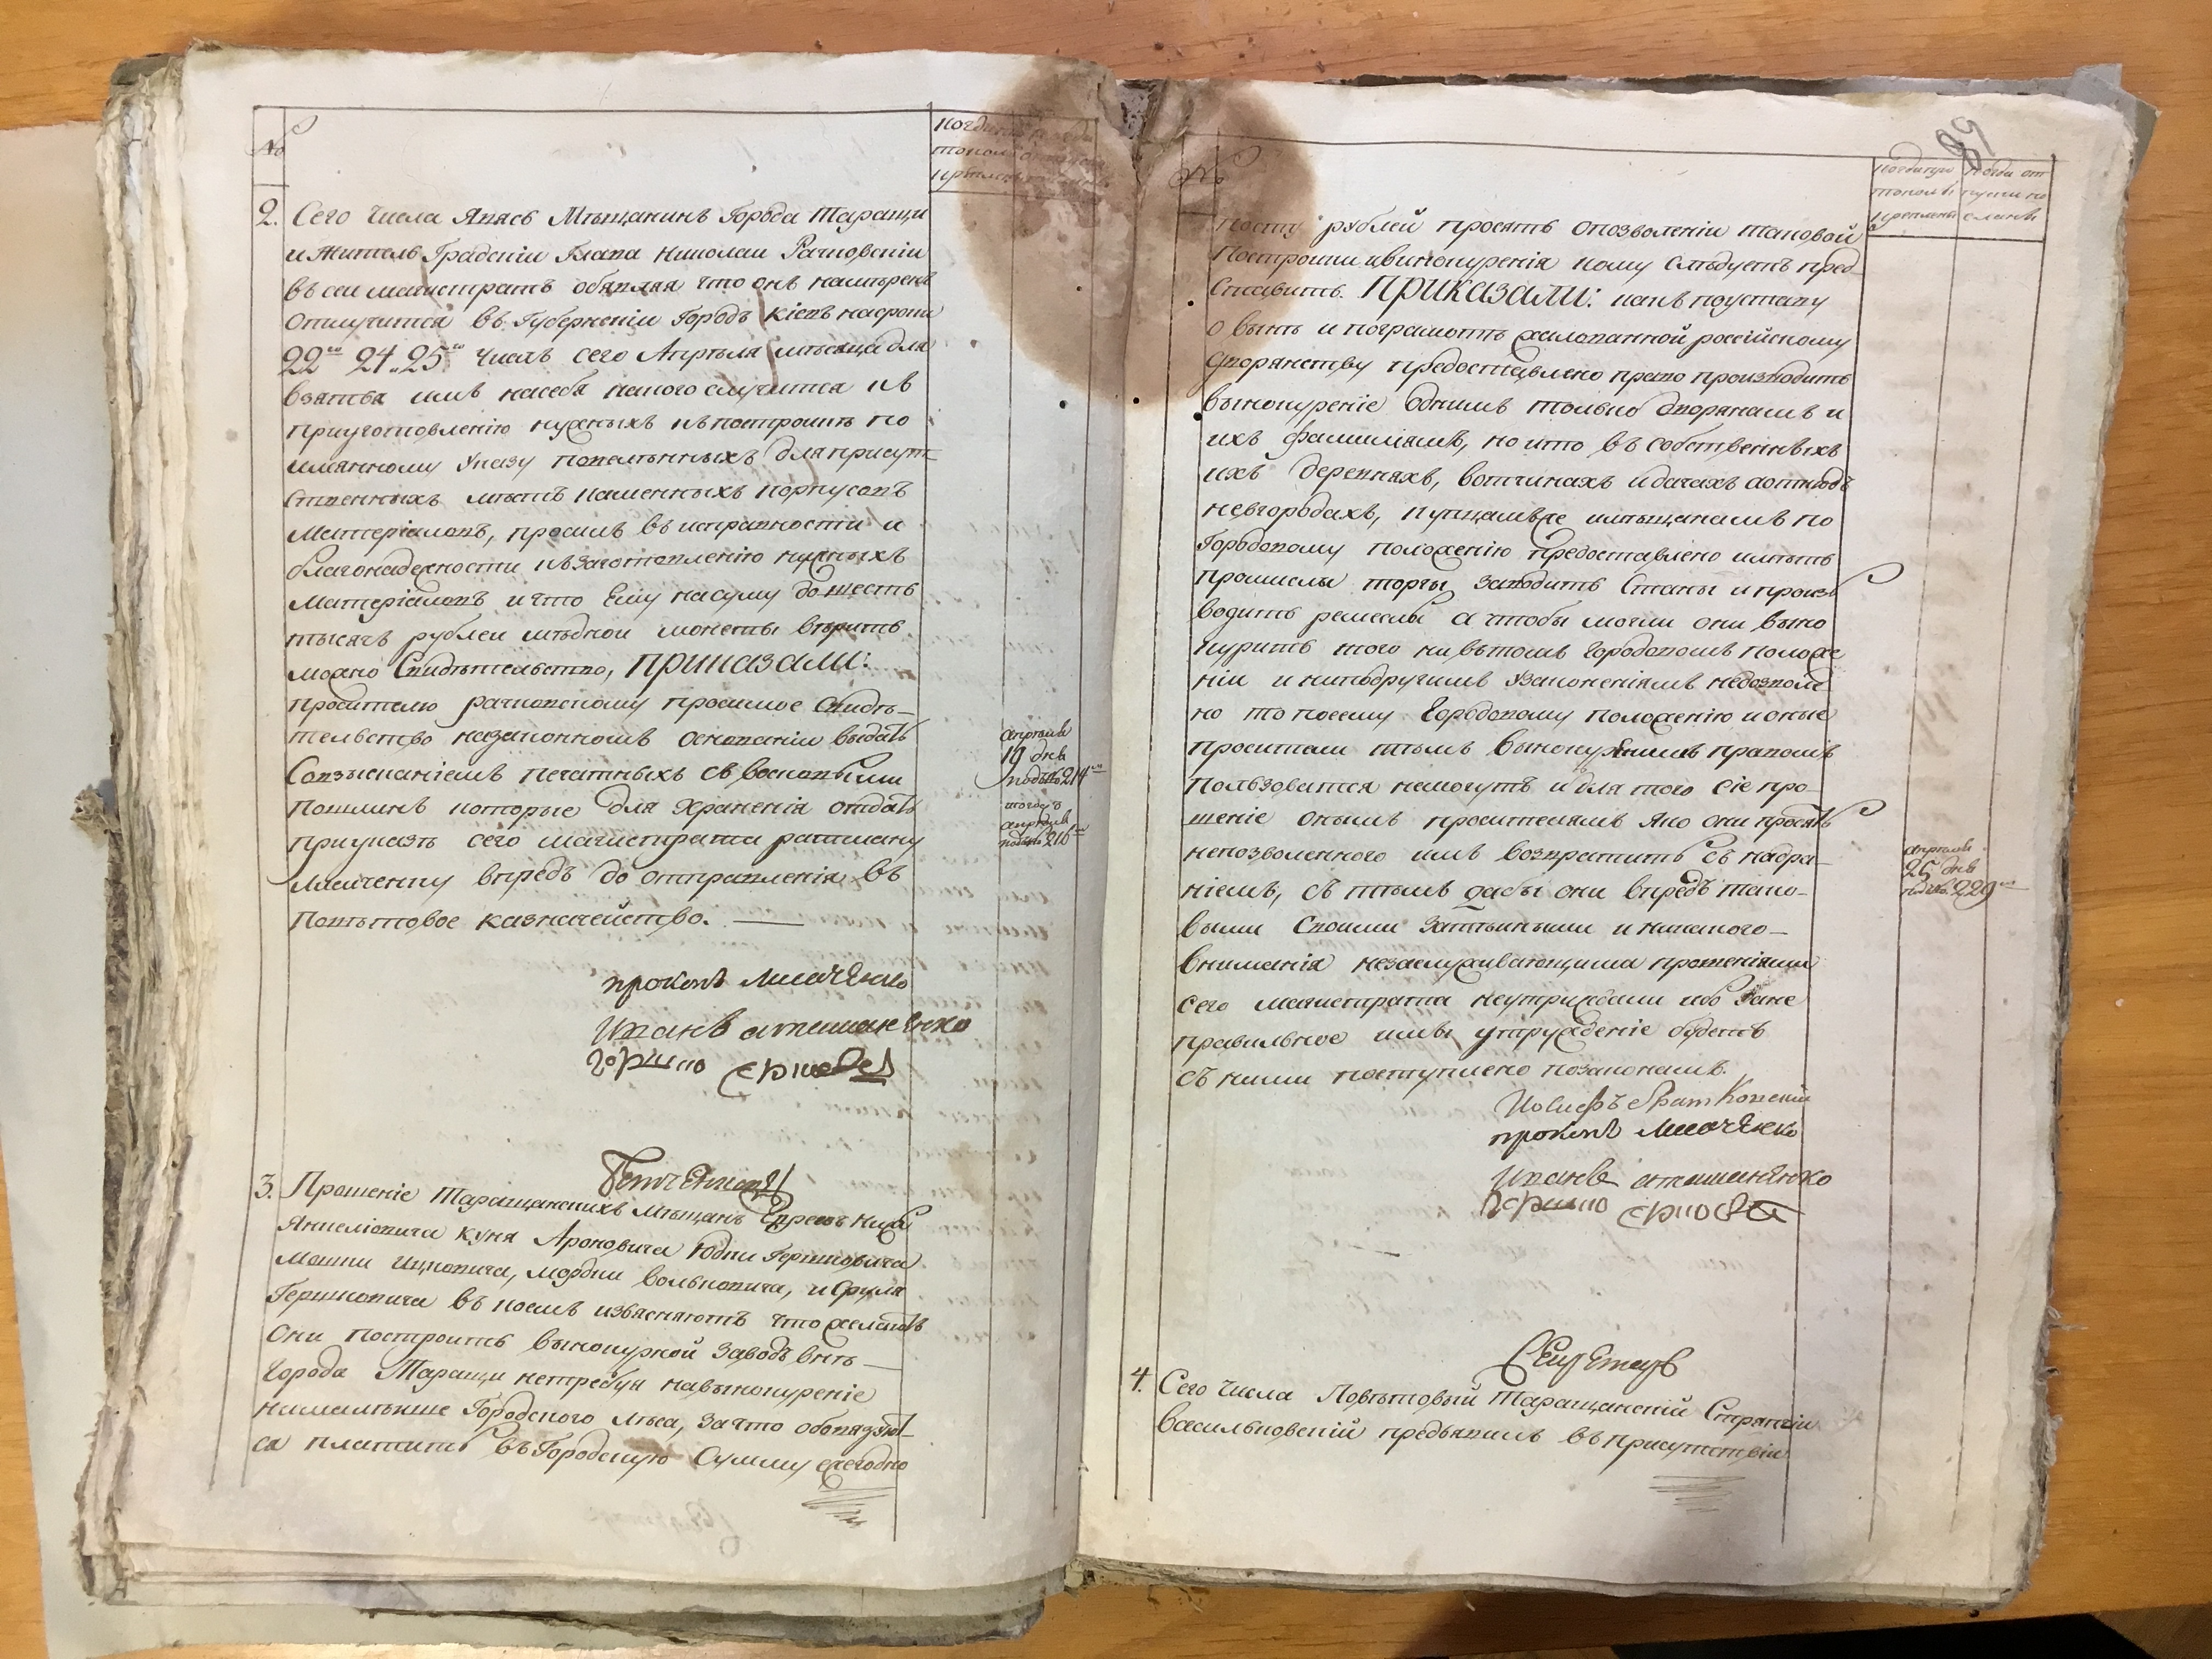 №
2. Сего числа явясь мѣщанинъ города Таращи
и житель градскій глава Николай Рачковскій
въ сей магистратъ объявляя что онъ намѣренъ
отлучится въ губернскій городъ Кіевъ насроки
22го 24. 25го числъ сего апрѣля мѣсяца для
взятья имъ насебя какого случится къ
приуготовленію нужныхъ къ построить по
имянному указу повелѣнныхъ для присут
ственныхъ мѣстъ каменныхъ корпусовъ
матеріаловъ, просилъ въ исправности и
благонадежности къ заготовленію нужныхъ
матеріаловъ и что ему на суму до шесть
тысячъ рублей мѣдной монеты вѣрить
можно свидѣтельство, приказали:
просителю рачковскому просимое свидѣ-
тельство на законномъ основаніи выдать
совзысканіемъ печатныхъ съ восковыми
пошлинъ которые для храненія отдать
приуказъ сего магистрата ратману
лисиченку впредь до отправленія въ
повѣтовое казначейство. —
апрѣля
19 дня
подъ № 214м
апрѣля
подъ № 216м
прокопъ лисоченко
Иванъ аташаненко
3. Прошеніе таращанскихъ мѣщанъ
Анкеліовича куня Ароновича юдки Гершковича
Мошки Ицковича, мордки вольковича, и сруля
Гершковича въ коемъ изьясняютъ что желаютъ
они построить вынокурной заводъ внѣ
города Таращи нетребуя навынокуреніе
нималѣйше городского лѣса, за что обовязуют
ся платить въ городскую сумму ежегодно
89
№
посту рублей просятъ опозволеніи таковой
постройки ивинокуренія кому слѣдуетъ пред
ставить. Приказали: какъ поуставу
о вынѣ и пограмотѣ жалованной россійскому
дворянству предоставлено право производить
вынокуреніе однимъ только дворянамъ и
ихъ фамиліямъ, но ито въ собственныхъ
ихъ деревняхъ, вотчинахъ идачахъ аотнюдъ
невгородахъ, купцамъже имѣщанамъ по
городовому положенію предоставлено имѣть
промыслы торги, заводить станы и произ
водить ремеслы а чтобы могли они выно
курить того нивътомъ городовомъ положе
ніи и никодругимъ узаконеніямъ недозволе
но то посему городовому положенію и оные
просители тѣмъ вынокуреннымъ правомъ
пользоватся немогутъ и для того сіе про-
шеніе онымъ просителямъ яко они просятъ
непозволенного имъ возвратить съ надра-
ніемъ, съ тѣмъ дабы они впредь тако-
выми своими затѣйными и никакого-
вниманія незаслуживающими прошеніями
сего магистрата неутруждали ибо зане
правильное имы утружденіе будетъ
съ ними поступлено позаконамъ.
апрѣля
25 дня
подъ № 229м
прокопъ лисоченко
Иванъ аташаненко
Секретарь
4. Сего числа повѣтовый таращанскій стряпчій
васильковскій предъявилъ въ присутствіи